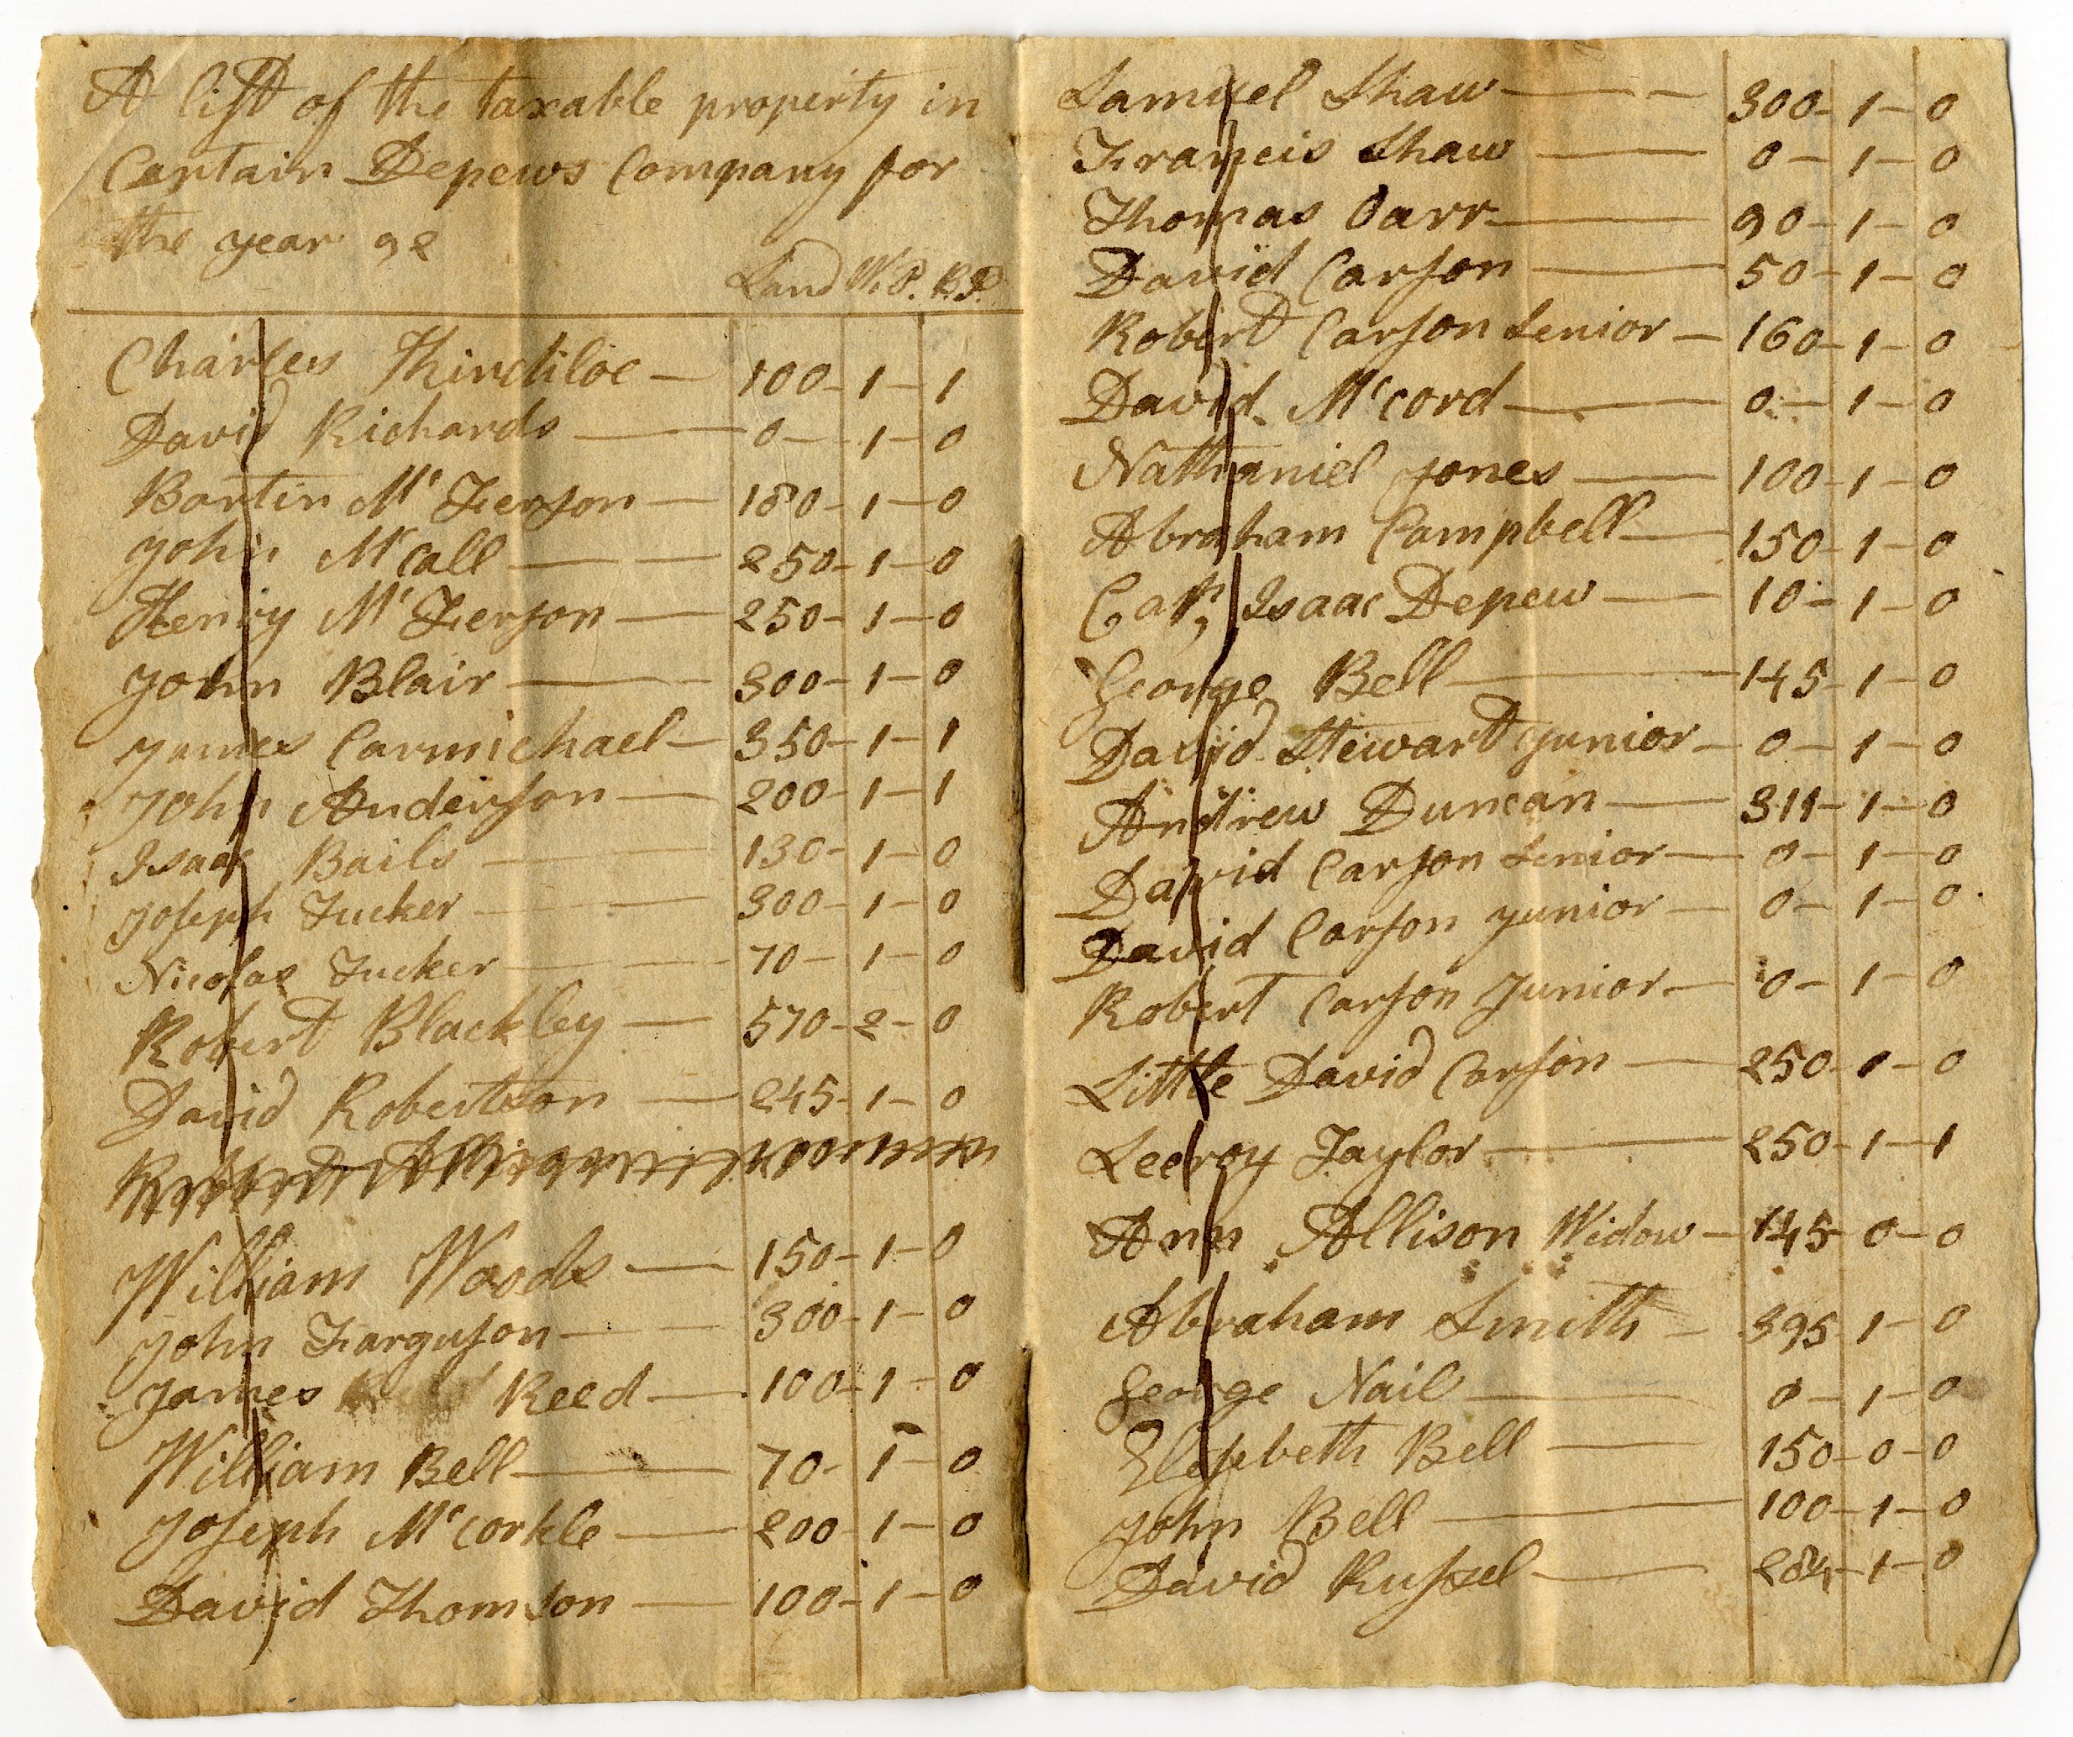 A list of the taxable property in
Captain Depews Company for
the year 92
Land W.P. B.P.
Charles Thirdiloe — 100 - 1 - 1
David Richards — 0 - 1 - 0
Bartin McFerson — 180 - 1 - 0
John McCall — 250 - 1 - 0
Henry McFerson — 250 - 1 - 0
John Blair — 300 - 1 - 0
James Carmichael — 350 - 1 - 1
John Anderson — 200 - 1 - 1
Isaac Bails — 130 - 1 - 0
Joseph Tucker — 300 - 1 - 0
Nicolas Tucker — 70 - 1 - 0
Robert Blackley — 570 - 2 - 0
David Robertson — 245 - 1 - 0
Robert Allison
William Woods — 150 - 1 - 0
John Farguson — 300 - 1 - 0
James Reed — 100 - 1 - 0
William Bell — 70 - 1 - 0
Joseph McCorkle — 200 - 1 - 0
David Thomson — 100 - 1 - 0
Samuel Shaw — 300 - 1 - 0
Francis Shaw — 0 - 1 - 0
Thomas Carr — 90 - 1 - 0
David Carson — 50 - 1 - 0
Robert Carson Senior — 160 - 1 - 0
David McCord — 0 - 1 - 0
Nathaniel Jones — 100 - 1 - 0
Abraham Campbell — 150 - 1 - 0
Capt Isaac Depew — 10 - 1 - 0
George Bell — 145 - 1 - 0
David Stewart Junior — 0 - 1 - 0
Andrew Duncan — 311 - 1 - 0
David Carson Senior — 0 - 1 - 0
David Carson Junior — 0 - 1 - 0
Robert Carson Junior — 0 - 1 - 0
Little David Carson — 250 - 0
Leeroy Taylor — 250 - 1 - 1
Ann Allison Widow — 145 - 0 - 0
Abraham Smith — 395 - 1 - 0
George Nail — 0 - 1 - 0
Elesebeth Bell — 150 - 0 - 0
John Bell — 100 - 1 - 0
David Russel — 284 - 1 - 0